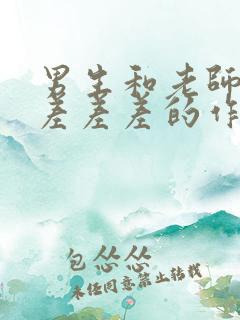 男生和老師
差差差的作
包怂怂
未经同意禁止转载